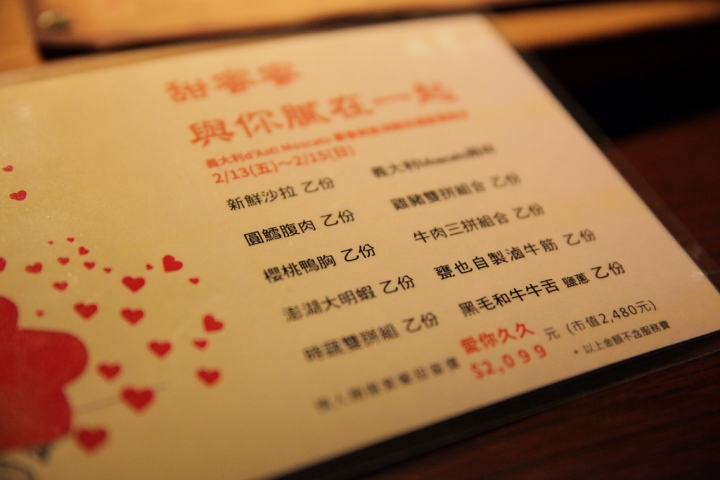 甜蜜蜜
與你膩在一起
義大利d'Asti Moscato
2/13(五)～2/15(日)
新鮮沙拉 乙份
義大利Moscato
圓鱈腹肉 乙份
雞豬雙拼組合 乙份
櫻桃鴨胸 乙份
牛肉三拼組合 乙份
澎湖大明蝦 乙份
甕也自製滷牛筋 乙份
時蔬雙拼組 乙份
黑毛和牛牛舌 鹽蔥 乙份
愛你久久
$2,099 元 (市值2,480元)
* 以上金額不含服務費